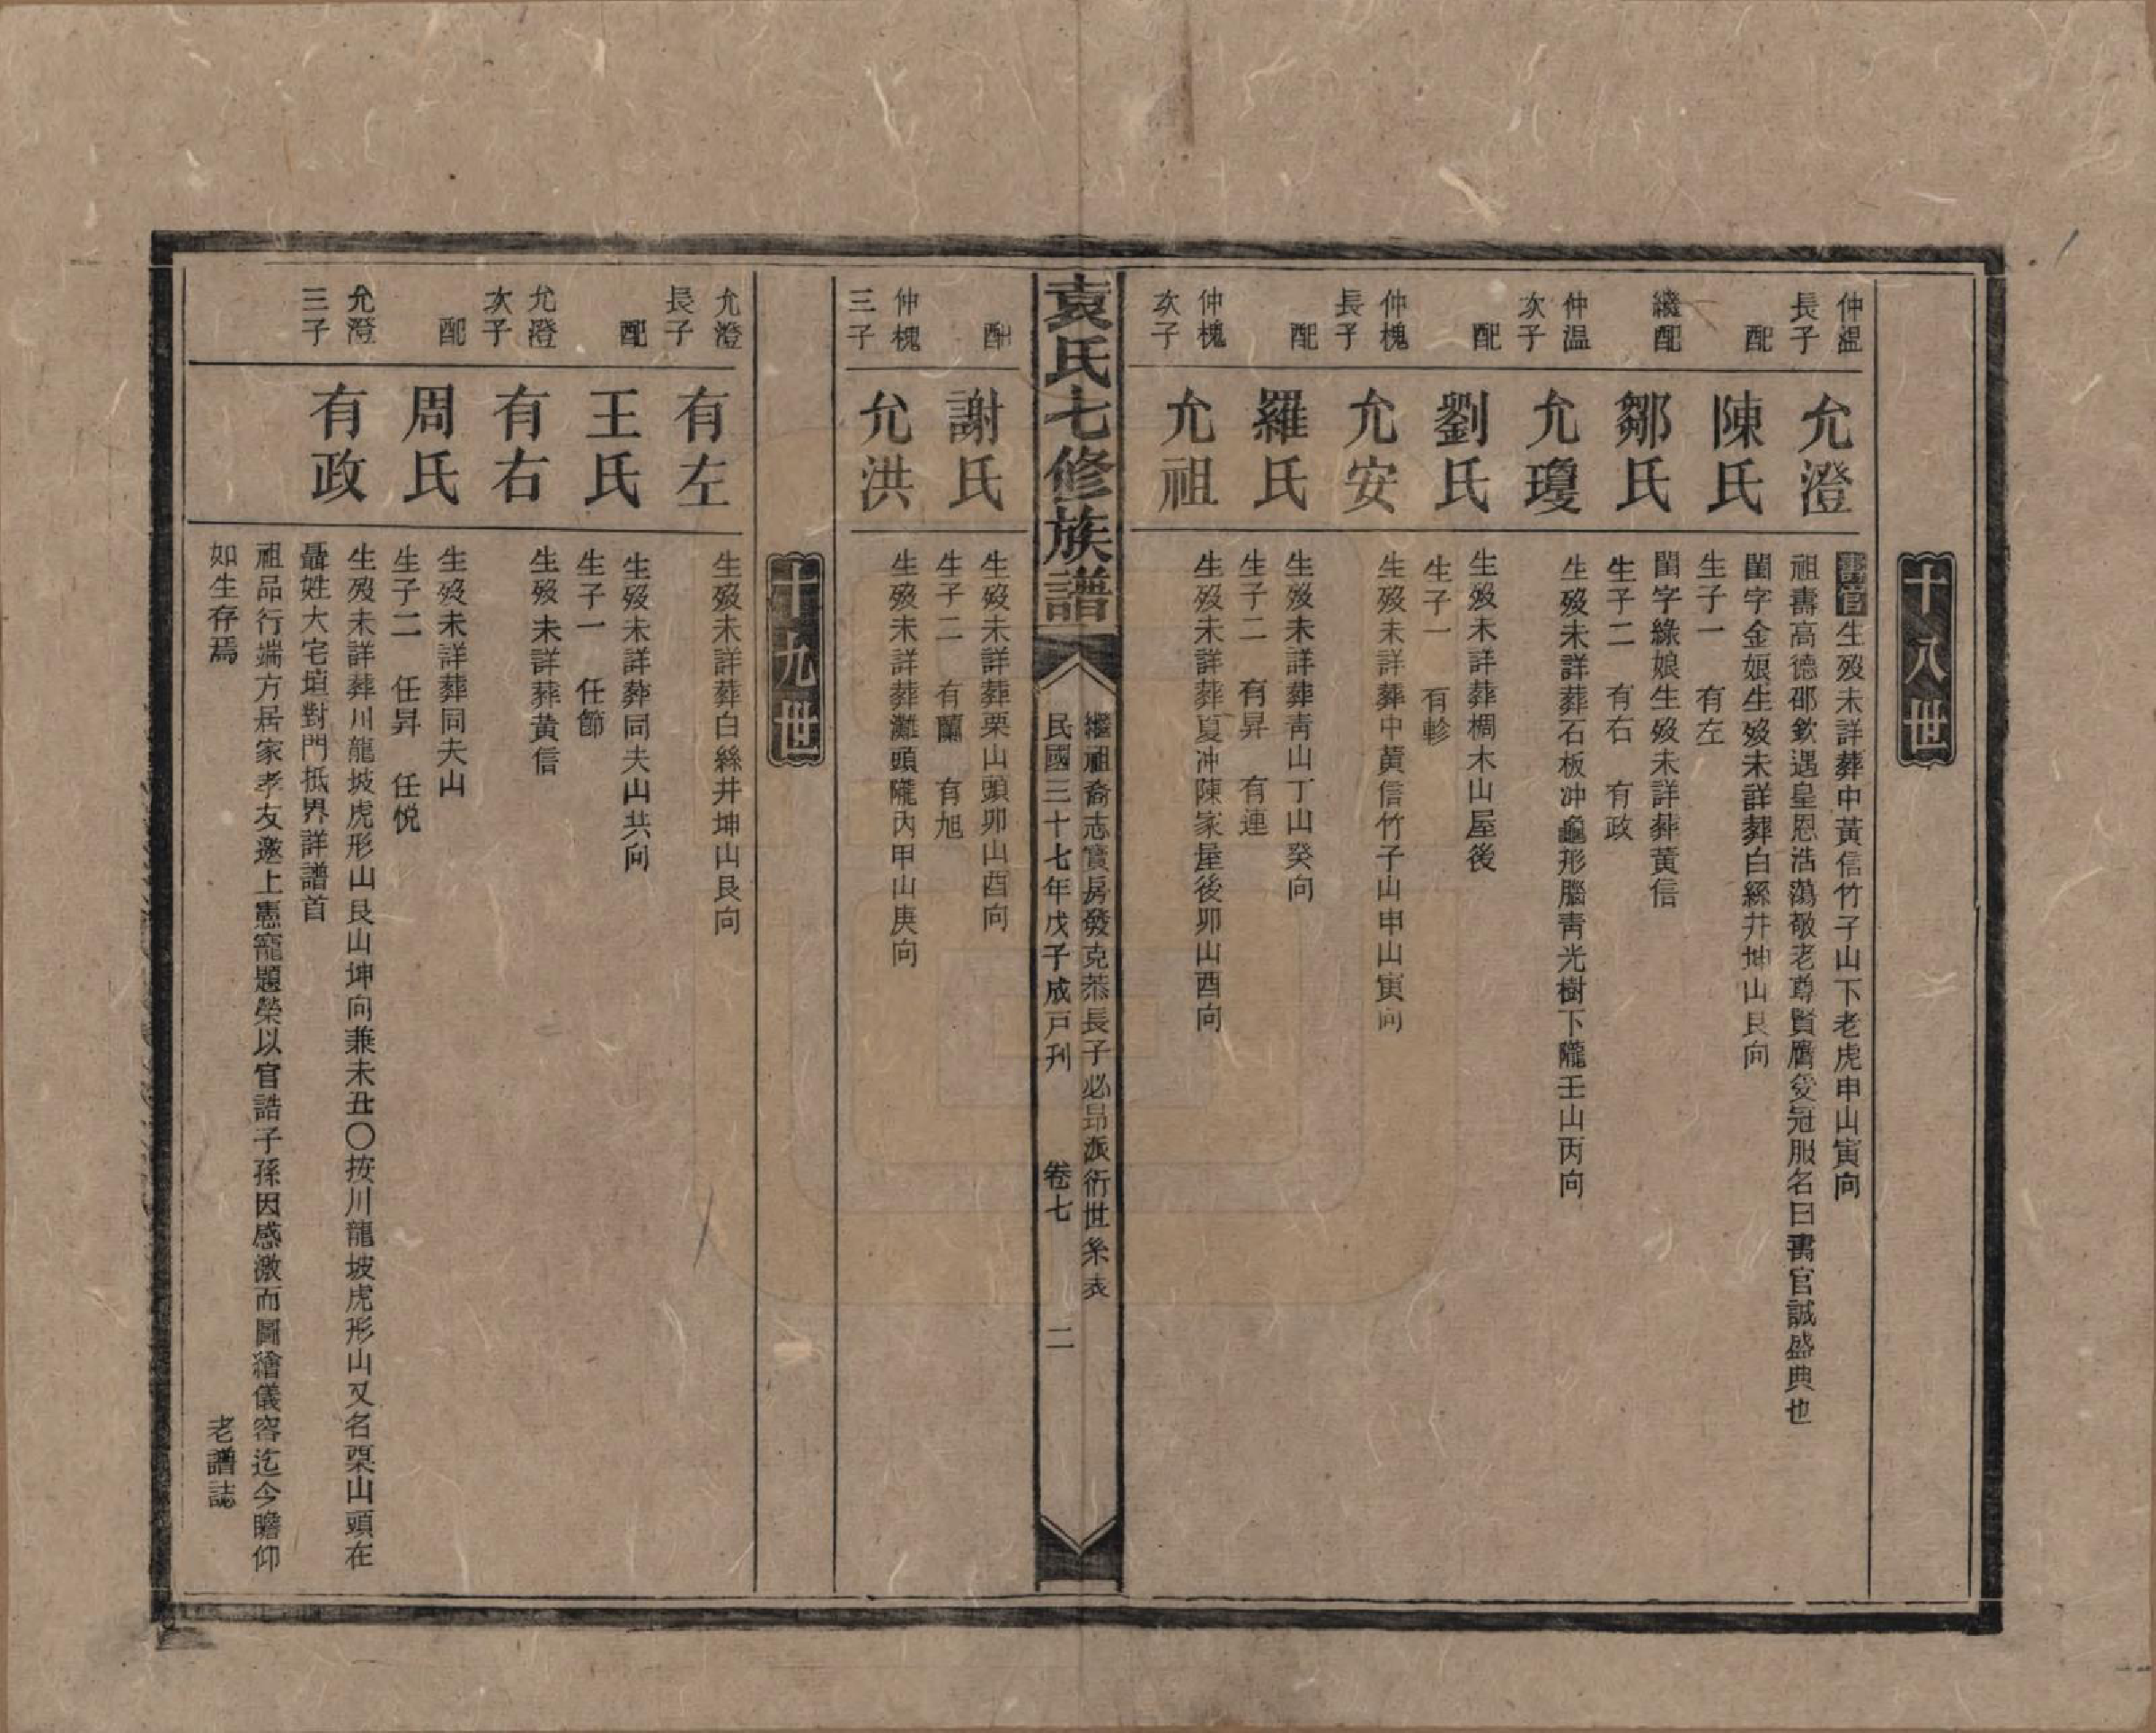 十八世
仲温長子
允澄
壽官生歿未詳葬中黃信竹子山下老虎申山寅向
祖壽高德邵欽遇皇恩浩蕩敬老尊賢膺受冠服名曰壽官誠盛典也
配
陳氏
閨字金娘生歿未詳葬白絲井坤山艮向
生子一　有左
繼配
鄒氏
閨字綠娘生歿未詳葬黃信
生子二　有右　有政
仲温次子
允瓊
生歿未詳葬石板冲龜形腦靑光樹下隴壬山丙向
配
劉氏
生歿未詳葬榈木山屋後
生子一　有軫
仲槐長子
允安
生歿未詳葬中黃信竹子山申山寅向
配
羅氏
生歿未詳葬靑山丁山癸向
生子二　有昇　有連
仲槐次子
允祖
生歿未詳葬夏冲陳家屋後卯山酉向
袁氏七修族譜
繼祖裔志寶房發克恭長子必昂派衍世系表
民國三十七年戊子成戸刋　卷七　二
配
謝氏
生歿未詳葬栗山頭卯山酉向
生子二　有蘭　有旭
仲槐三子
允洪
生歿未詳葬灘頭隴內甲山庚向
十九世
允澄長子
有左
生歿未詳葬白絲井坤山艮向
配
王氏
生歿未詳葬同夫山共向
生子一　任節
允澄次子
有右
生歿未詳葬黃信
配
周氏
生歿未詳葬同夫山
生子二　任昇　任悅
允澄三子
有政
生歿未詳葬川龍坡虎形山艮山坤向兼未丑〇按川龍坡虎形山又名栗山頭在
聶姓大宅垣對門抵界詳譜首
祖品行端方居家孝友邀上憲寵題榮以官誥子孫因感激而圖繪儀容迄今瞻仰
如生存焉　老譜誌